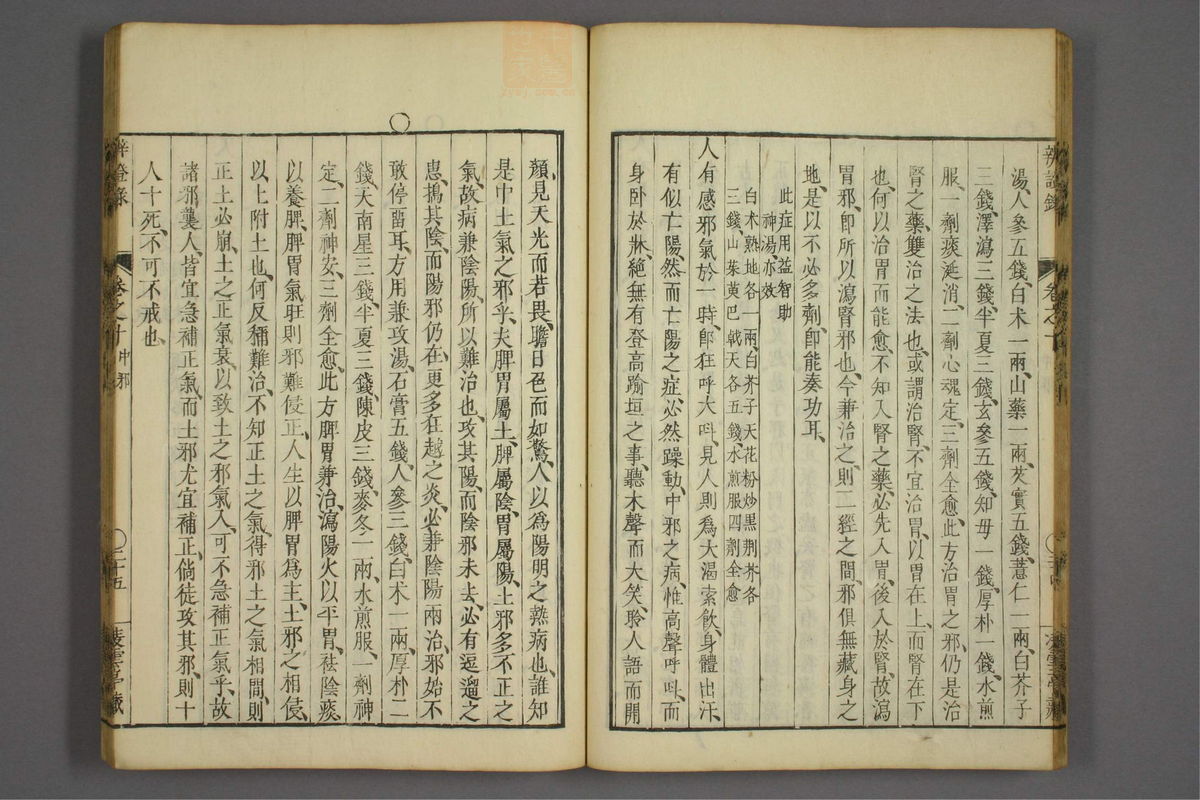 湯、人參五錢、白术一兩、山藥一兩、芡實五錢、薏仁一兩、白芥子
三錢、澤瀉三錢、半夏三錢、玄參五錢、知毋一錢、厚朴一錢、水煎
服、一劑痰涎消、二劑心魂定、三劑全愈、此方治胃之邪、仍是治
腎之藥、雙治之法也、或謂治腎、不宜治胃、以胃在上、而腎在下
也、何以治胃而能愈、不知入腎之藥、必先入胃、後入於腎、故瀉
胃邪、卽所以瀉腎邪也、今兼治之、則二經之間、邪俱無藏身之
地、是以不必多劑、卽能奏功耳、
此症用益智助
神湯、亦效
白术熟地各一兩、白芥子天花粉炒黑荆芥各
三錢、山茱萸巴戟天各五錢、水煎服四劑全愈
人有感邪氣於一時、卽狂呼大呌、見人則爲大渴索飲、身體出汗、
有似亡陽、然而亡陽之症、必然躁動、中邪之病、惟高聲呼呌、而
身卧於牀、絕無有登高踰垣之事、聽木聲而大笑、聆人語而開
顏、見天光而若畏、瞻日色而如驚、人以爲陽明之熱病也、誰知
是中土氣之邪乎、夫脾胃屬土、脾屬陰、胃屬陽、土邪多不正之
氣、故病兼陰陽、所以難治也、攻其陽、而陰邪未去、必有逗遛之
患、搗其陰、而陽邪仍在、更多狂越之炎、必兼陰陽兩治、邪始不
敢停畱耳、方用兼攻湯、石膏五錢、人參三錢、白术一兩、厚朴二
錢、天南星三錢、半夏三錢、陳皮三錢、麥冬一兩、水煎服、一劑神
定、二劑神安、三劑全愈、此方脾胃兼治、瀉陽火以平胃、祛陰痰
以養脾、脾胃氣旺、則邪難侵正、人生以脾胃爲主、土邪之相侵、
以上附土也、何反稱難治、不知正土之氣、得邪土之氣相間、則
正土必崩、土之正氣衰、以致土之邪氣入、可不急補正氣乎、故
諸邪襲人、皆宜急補正氣、而土邪尤宜補正、倘徒攻其邪、則十
人十死、不可不戒也、
辨證錄
卷之十 中邪
二十五